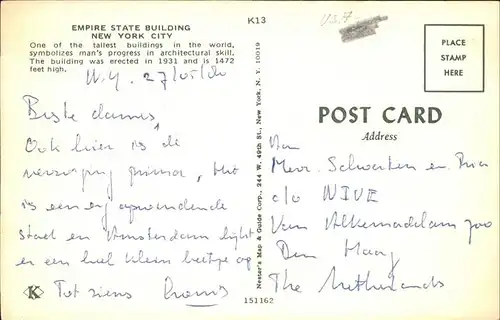 EMPIRE STATE BUILDING
NEW YORK CITY
One of the tallest buildings in the world,
symbolizes man's progress in architectural skill.
The building was erected in 1931 and is 1472
feet high.
K13
U.S.A.
PLACE
STAMP
HERE
POST CARD
Address
Nester's Map & Guide Corp., 244 W. 49th St., New York, N. Y. 10019
N.Y. 27/05/80
Beste dames,
Ook hier is de
verzorging prima, dit
is een opwindende
stad en Amsterdam lijkt
er een heel klein beetje op
Tot ziens
K
151162
Aan
Mevr. Schwerten en Ria
c/o NIVE
Van Alkemadelaan 700
Den Haag
The Netherlands